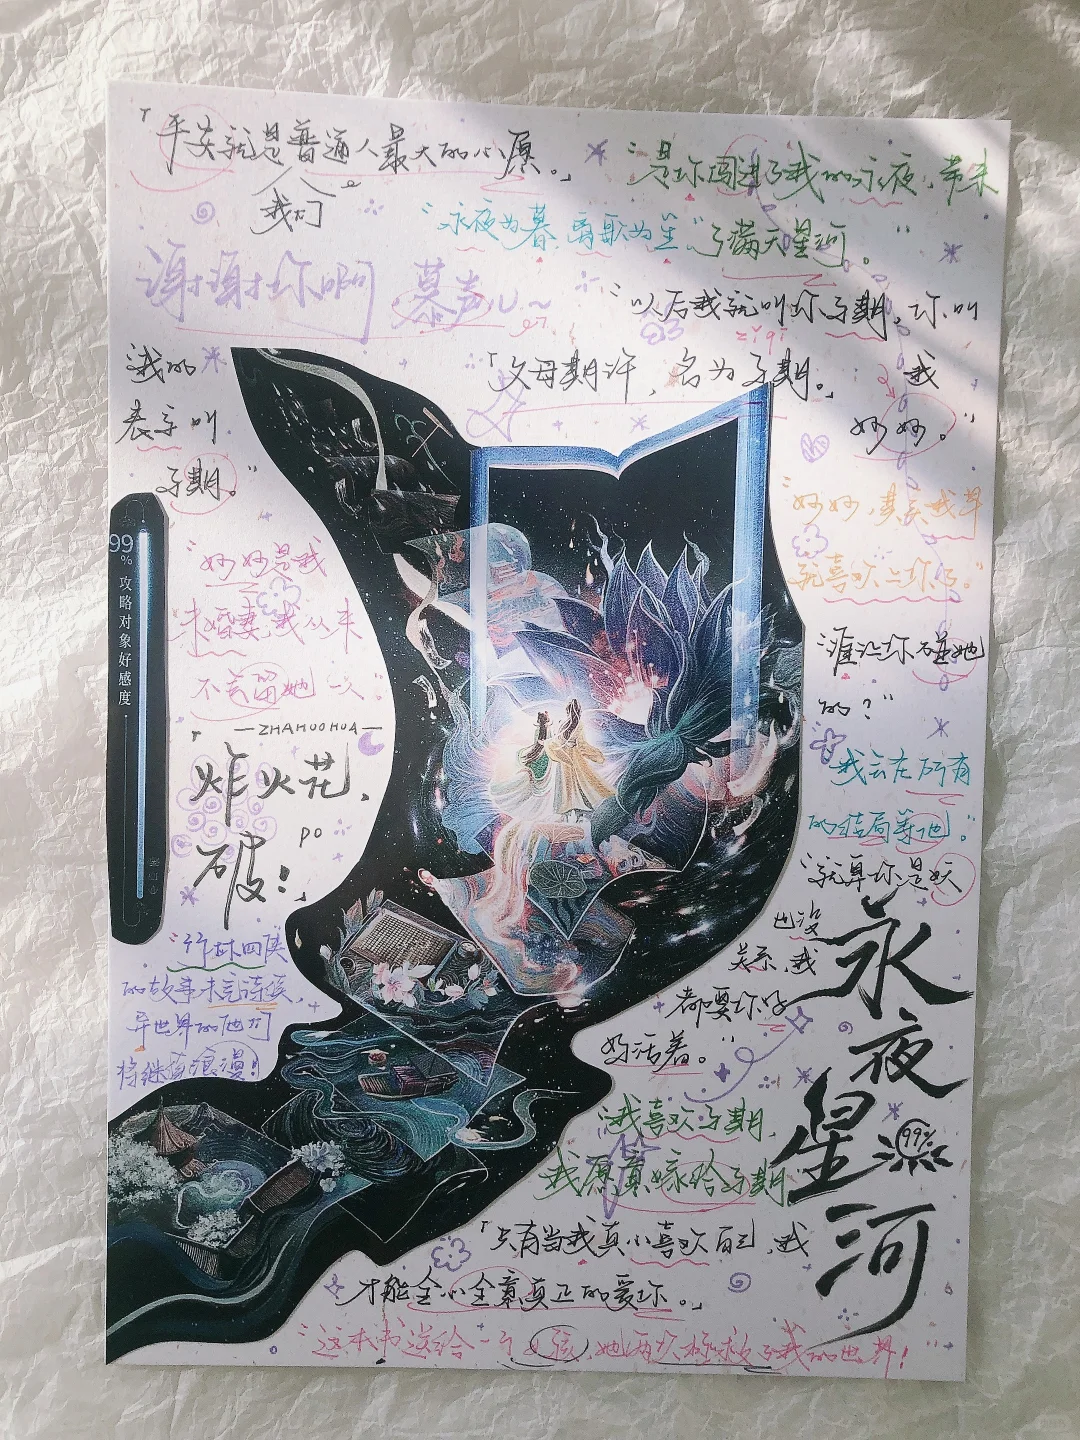 「平安就是普通人最大的心愿。」
我们
“是你闯进了我的永夜，带来
了满天星河。”
“永夜为暮，离歌为笙”
谢谢你啊 慕声儿~
“以后我就叫你子期，你叫
我
妙妙。”
ziqi
「父母期许，名为子期。」
“我的
表字叫
子期。”
99
%
攻略对象好感度
“妙妙，其实我早
就喜欢上你了。”
“妙妙是我
未婚妻，我从来
不舍留她一人”
“谁让你碰她
的？”
—ZHAHUOHUA—
「炸火花，
破！」
po
“我会在所有
的结局等他。”
“就算你是妖
也没
关系，我
都要你好
好活着。”
永夜星河
99%
“竹林四侠
的故事未完待续，
异世界的他们
将继续浪漫！
“我喜欢子期，
我愿意嫁给子期
「只有当我真心喜欢自己，我
才能全心全意真正的爱你。」
“这本书送给一个女孩，她两次拯救了我的世界！”